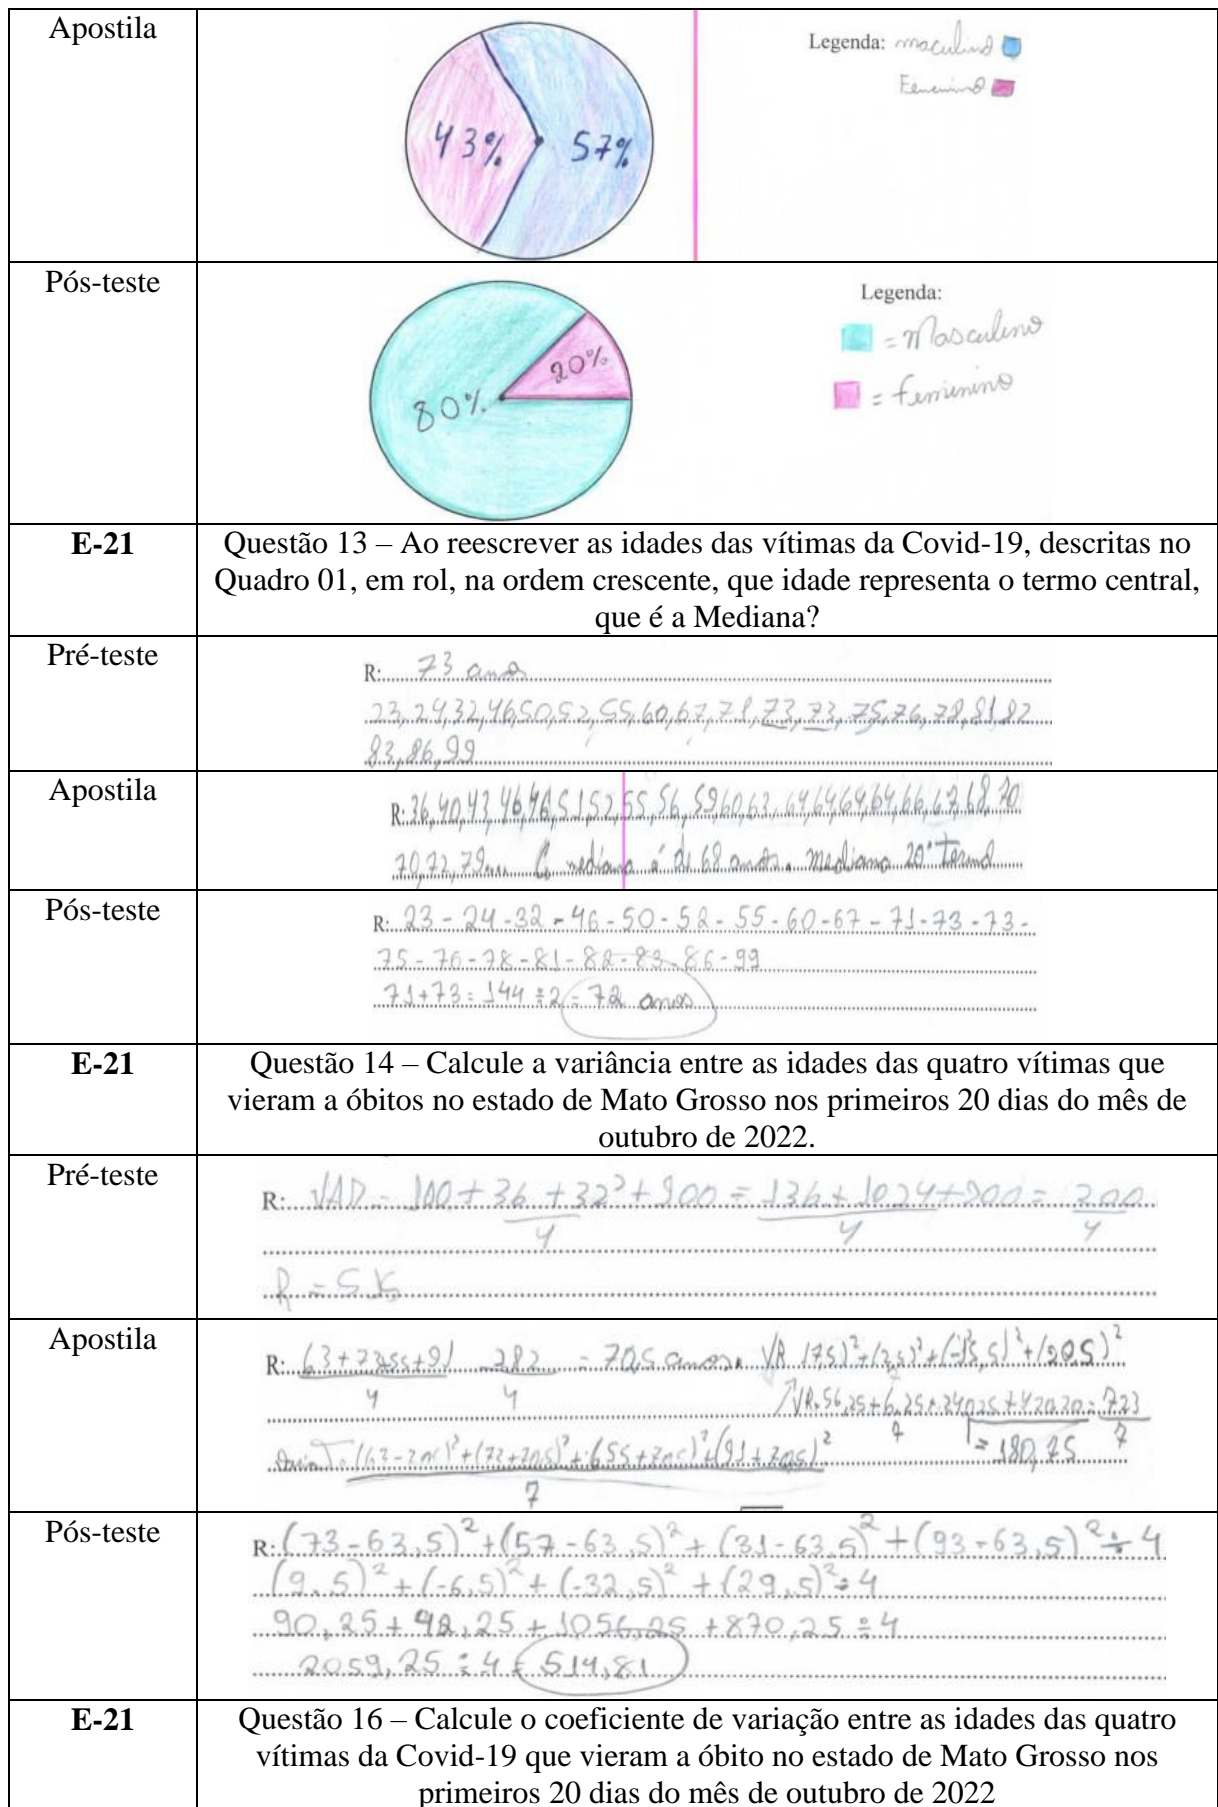 Apostila
43% 57%
Legenda: maculino
Femenino
Pós-teste
80% 20%
Legenda:
= Masculino
= feminino
E-21
Questão 13 – Ao reescrever as idades das vítimas da Covid-19, descritas no
Quadro 01, em rol, na ordem crescente, que idade representa o termo central,
que é a Mediana?
Pré-teste
R: 73 anos
23,24,32,46,50,52,55,60,67,71,73,73,75,76,78,81,82
83,86,99
Apostila
R: 36,40,43,46,46,51,52,55,56,59,60,63,64,64,64,64,66,67,68,70
70,72,79 mediana é de 68 anos. mediana 20º termo
Pós-teste
R: 23-24-32-46-50-52-55-60-67-71-73-73-
75-76-78-81-82-83-86-99
71+73=144÷2=72 anos
E-21
Questão 14 – Calcule a variância entre as idades das quatro vítimas que
vieram a óbitos no estado de Mato Grosso nos primeiros 20 dias do mês de
outubro de 2022.
Pré-teste
R: = 100+36+32²+900 = 136+1024+900 =
4 4 4
R =
Apostila
R: 63+73+55+91 282 = 70,5 anos.
4 4
7
= 180,75
7
Pós-teste
R: (73-63,5)²+(57-63,5)²+(31-63,5)²+(93-63,5)²÷4
(9,5)²+(-6,5)²+(-32,5)²+(29,5)²÷4
90,25+42,25+1056,25+870,25÷4
2059,25÷4=514,81
E-21
Questão 16 – Calcule o coeficiente de variação entre as idades das quatro
vítimas da Covid-19 que vieram a óbito no estado de Mato Grosso nos
primeiros 20 dias do mês de outubro de 2022